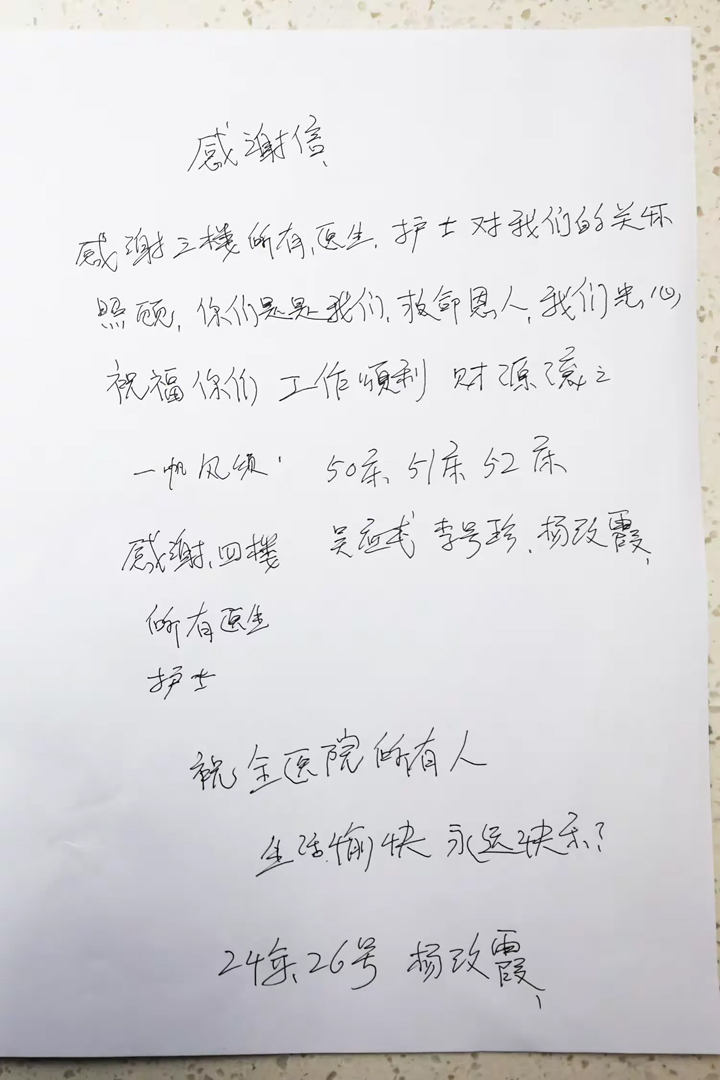 感谢信
感谢三楼所有医生,护士对我们的关怀
照顾,你们是是我们,救命恩人,我们忠心
祝福你们 工作顺利 财源滚之
一帆风顺, 50床 51床 52床
感谢,四楼 吴应武 李号珍,杨改霞,
所有医生
护士
祝全医院所有人
生活愉快 永远快乐?
24年,26号 杨改霞,